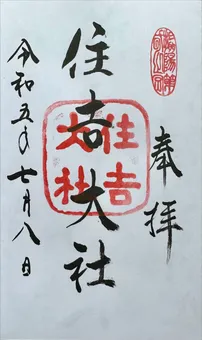 奉拝
住吉大社
住吉大社
令和五年七月八日